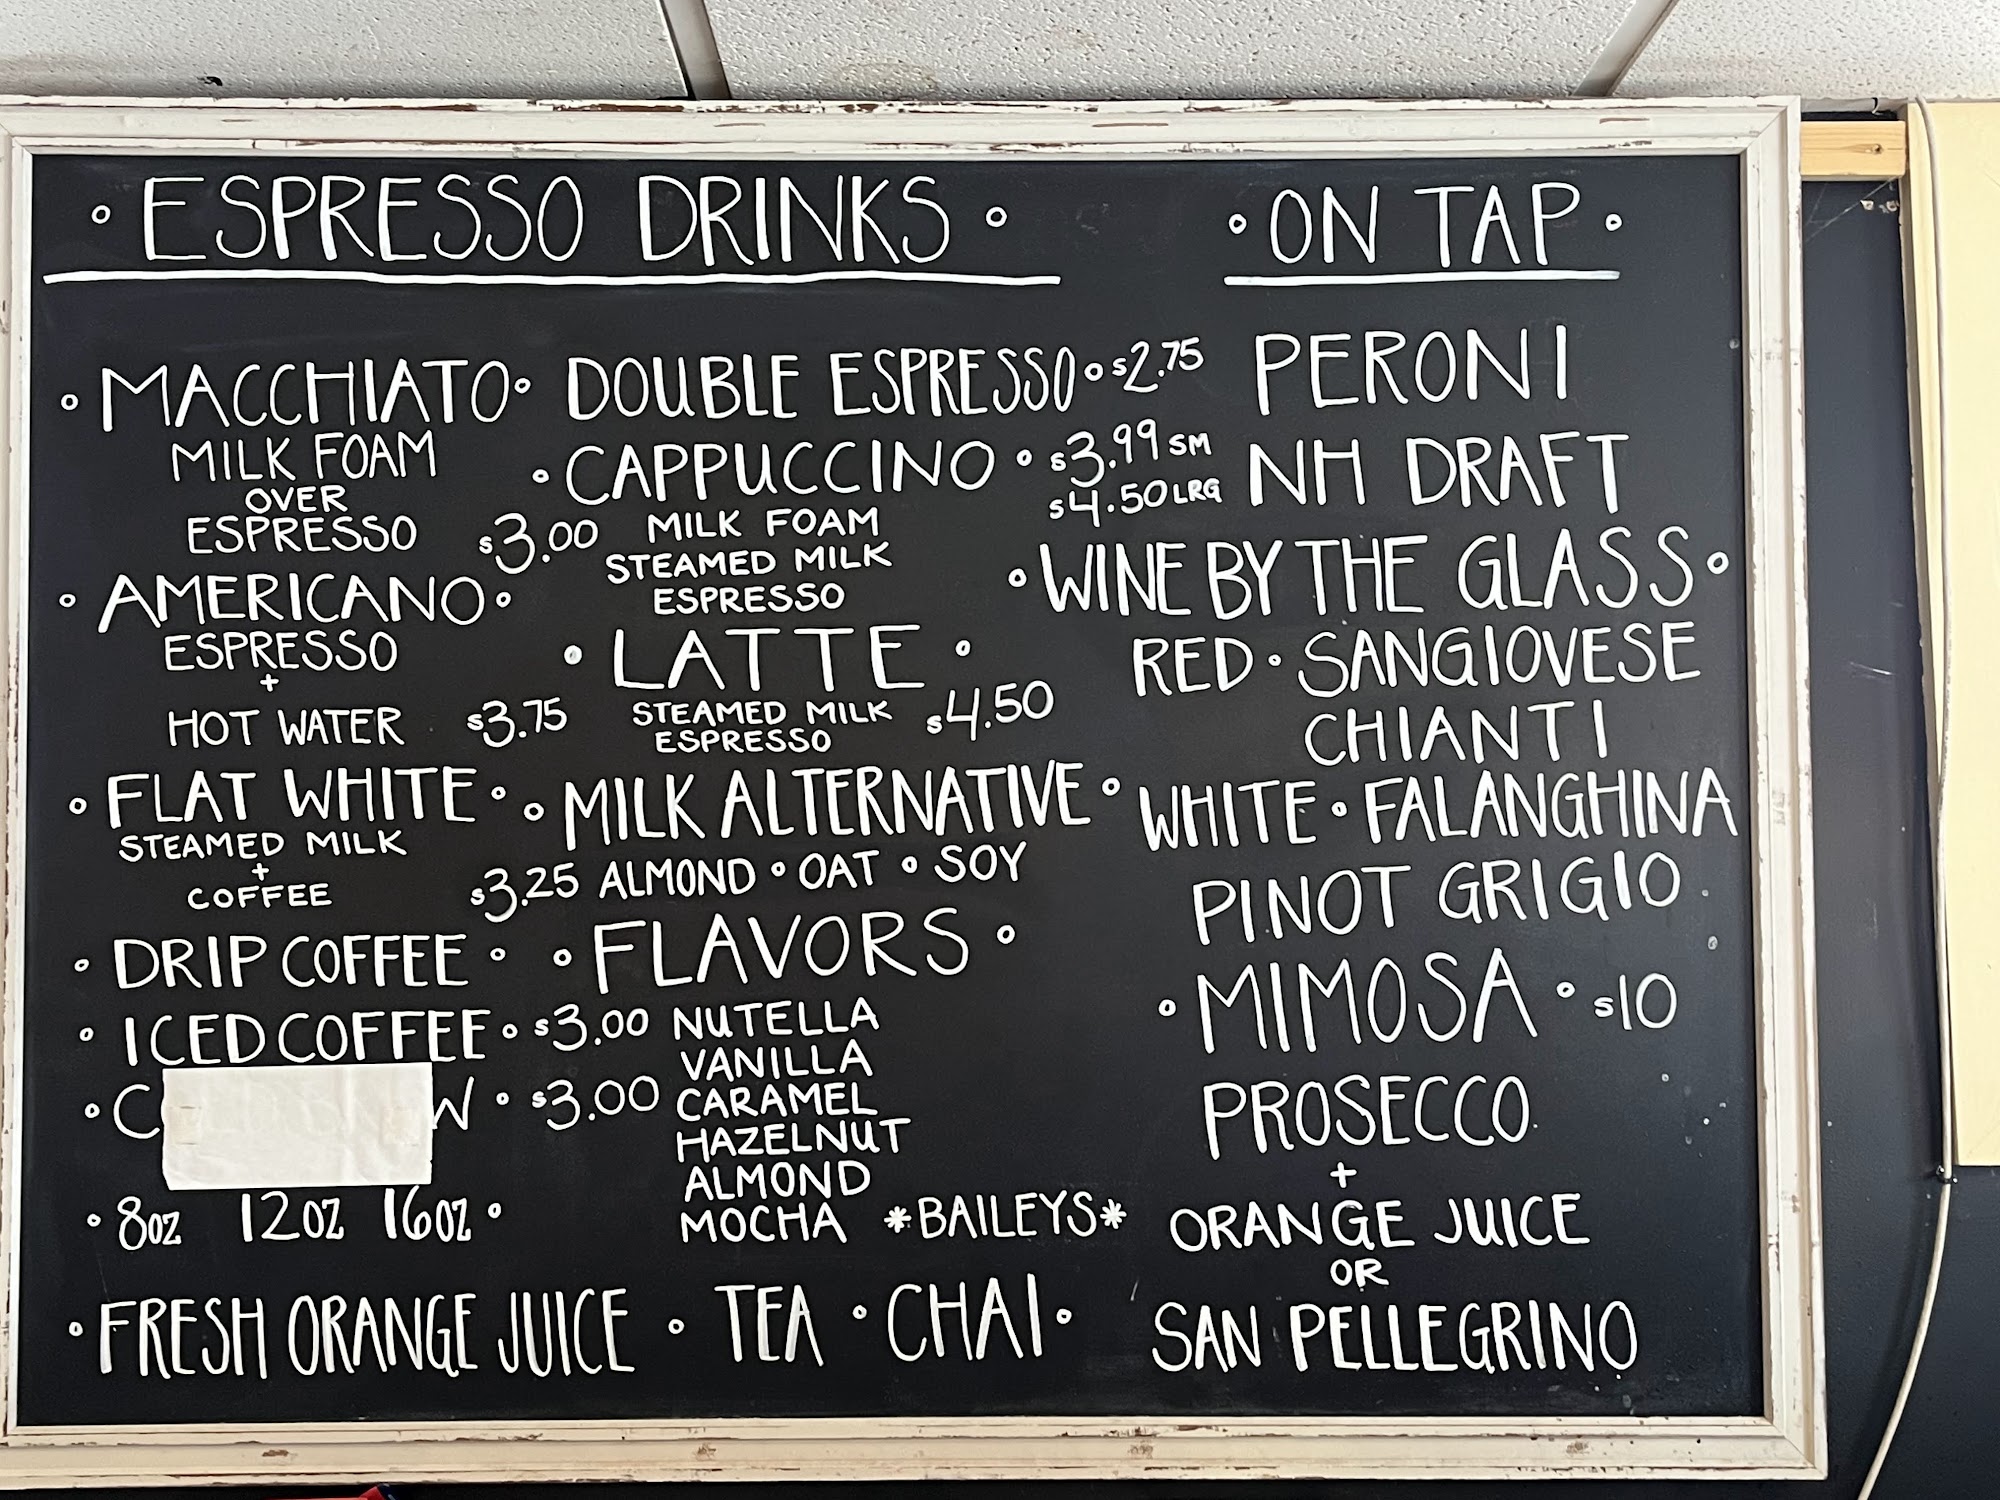 • ESPRESSO DRINKS •
• MACCHIATO •
MILK FOAM
OVER
ESPRESSO $3.00
• AMERICANO •
ESPRESSO
+
HOT WATER $3.75
• FLAT WHITE •
STEAMED MILK
+
COFFEE $3.25
• DRIP COFFEE •
• ICED COFFEE • $3.00
• $3.00
• 8OZ 12OZ 16OZ •
DOUBLE ESPRESSO • $2.75
• CAPPUCCINO • $3.99 SM
$4.50 LRG
MILK FOAM
STEAMED MILK
ESPRESSO
• LATTE •
STEAMED MILK $4.50
ESPRESSO
• MILK ALTERNATIVE •
ALMOND • OAT • SOY
• FLAVORS •
NUTELLA
VANILLA
CARAMEL
HAZELNUT
ALMOND
MOCHA *BAILEYS*
• FRESH ORANGE JUICE • TEA • CHAI •
• ON TAP •
PERONI
NH DRAFT
• WINE BY THE GLASS •
RED • SANGIOVESE
CHIANTI
WHITE • FALANGHINA
PINOT GRIGIO
• MIMOSA • $10
PROSECCO
+
ORANGE JUICE
OR
SAN PELLEGRINO